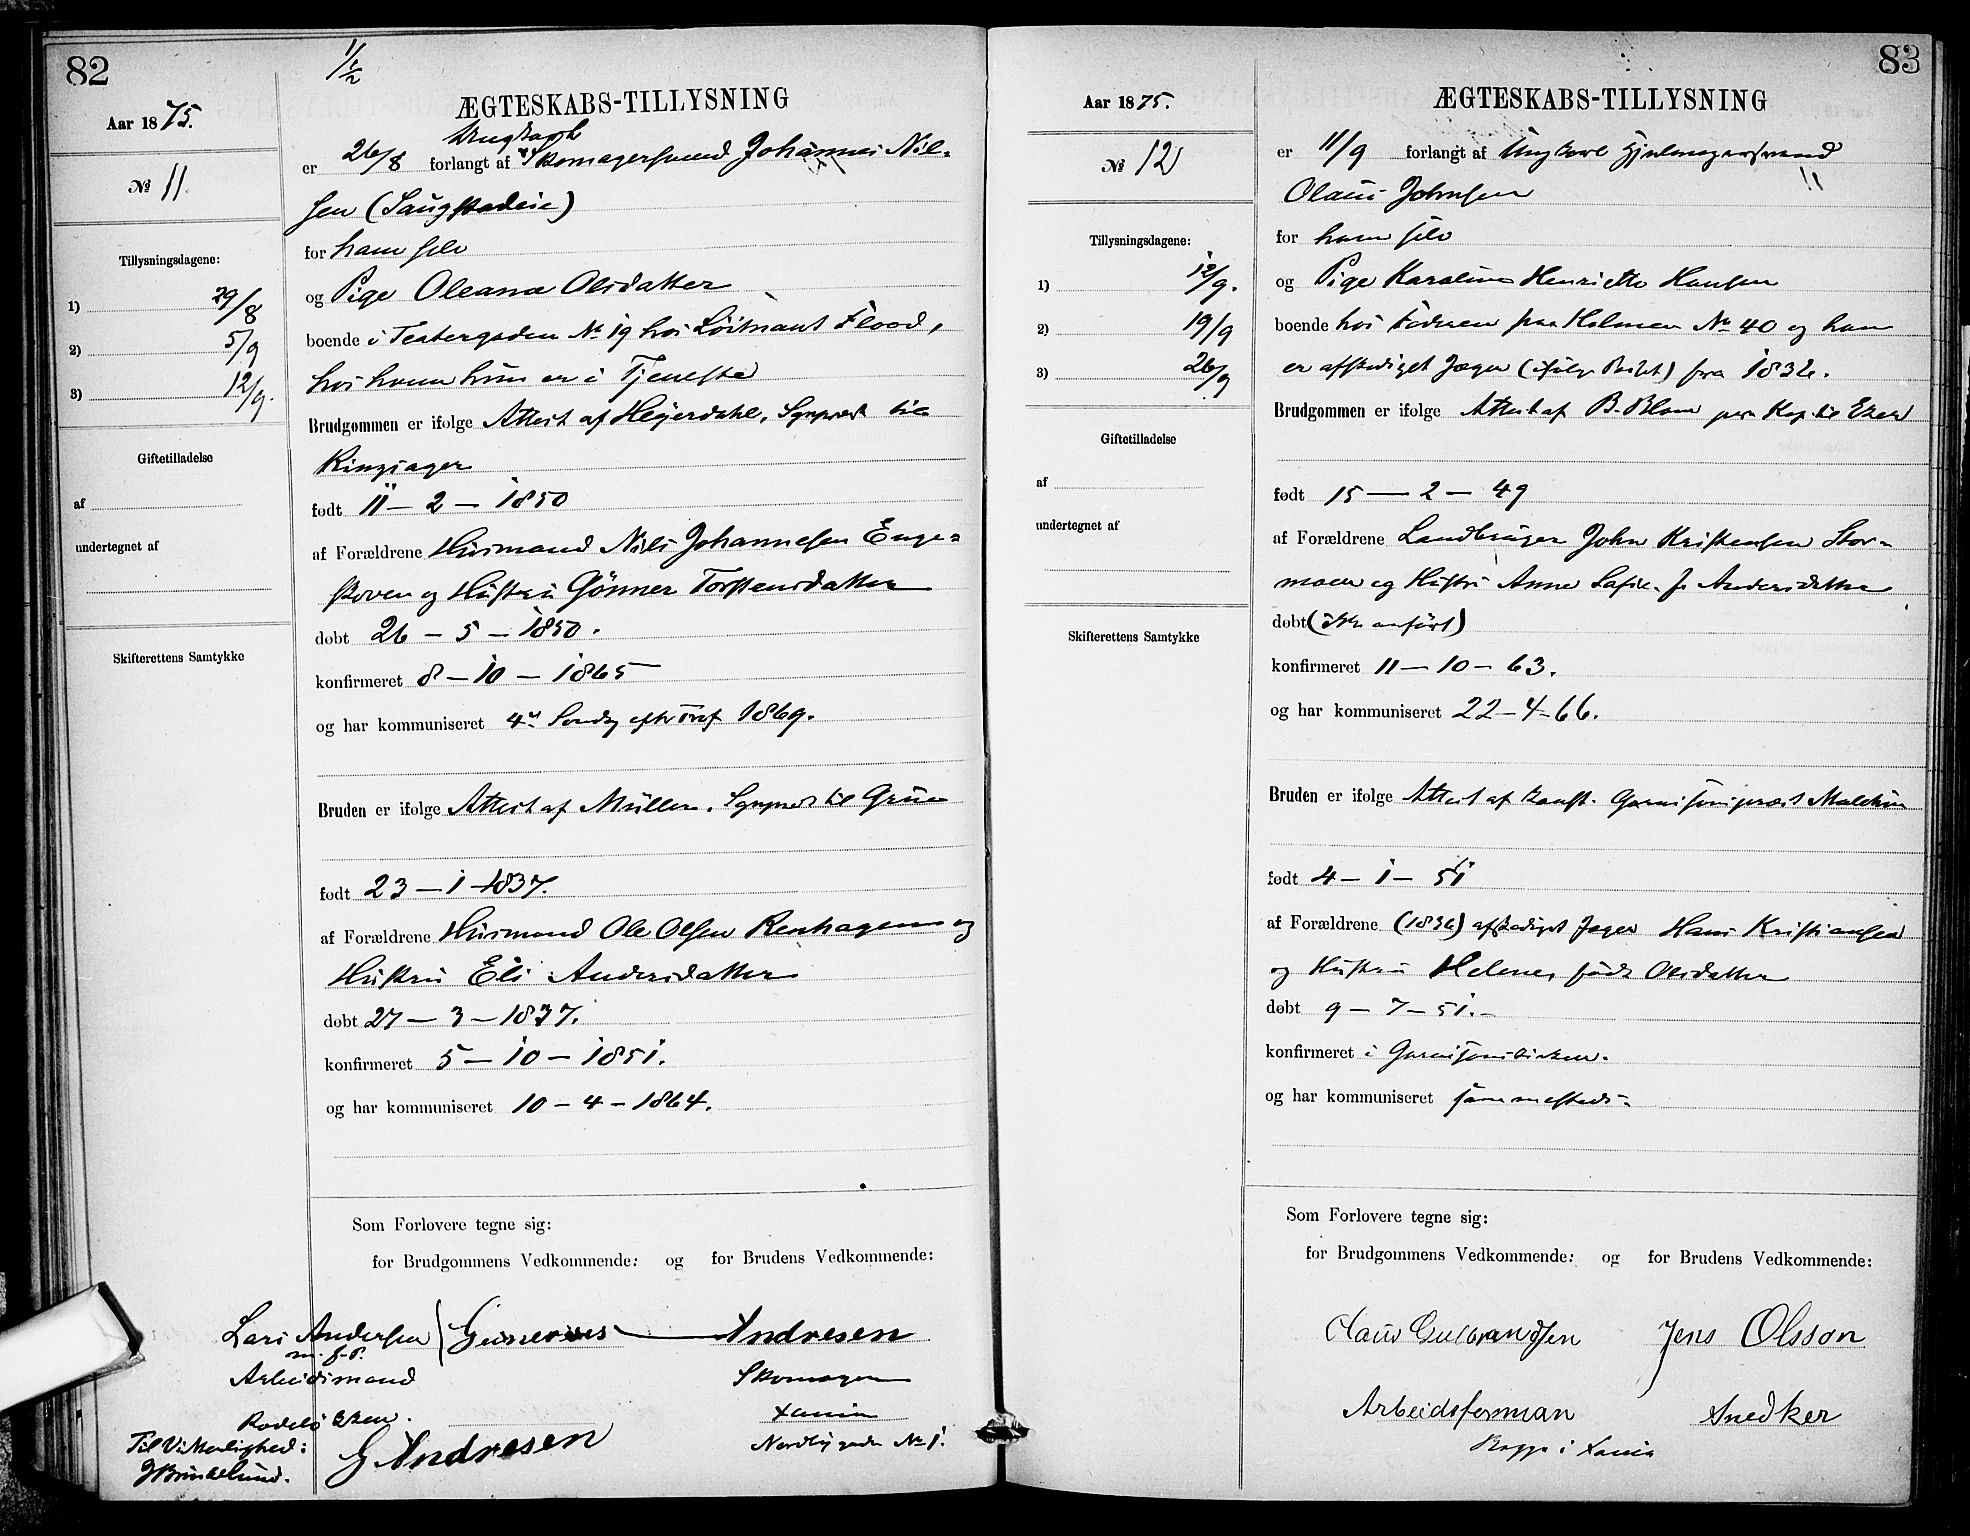 82
1/1/2
Aar 1875.
ÆGTESKABS-TILLYSNING
Ungkarl
№ 11.
er 26/8 forlangt af Skomagersvend Johannes Nil-
sen (Saugstadeie)
for ham selv
Tillysningsdagene:
og Pige Oleana Olsdatter
1) 29/8
boende i Teatergaden No 19 hos Löitnant Flood,
2) 5/9
hos hvem hun er i Tjeneste
3) 12/9.
Brudgommen er ifolge Attest af Heyerdahl, Sgnprest til
Ringsager
Giftetilladelse
født 11 - 2 - 1850
af
af Forældrene Husmand Nils Johannesen Enge-
undertegnet af
skoven og Hustru Gönner Torstensdatter
døbt 26 - 5 - 1850.
Skifterettens Samtykke
konfirmeret 8 - 10 - 1865
og har kommuniseret 4de Sondg eftr Tref 1869.
Bruden er ifolge Attest af Müller, Sgnprest til Grue
født 23 - 1 - 1837.
af Forældrene Husmand Ole Olsen Renhagen og
Hustru Eli Andersdatter
døbt 27 - 3 - 1837.
konfirmeret 5 - 10 - 1851.
og har kommuniseret 10 - 4 - 1864.
Som Forlovere tegne sig:
for Brudgommens Vedkommende: og for Brudens Vedkommende:
Lars Andersen Andresen
m. f. P.
Arbeidsmand Skomager
Xania
Nordbygaden No 1.
Til Vitterlighed:
G Andresen
83
Aar 1875.
ÆGTESKABS-TILLYSNING
№ 12
er 11/9 forlangt af Ungkarl Hjulmagersvend
Olaus Johnsen
Tillysningsdagene:
for ham selv
1) 12/9.
og Pige Karoline Henriette Hansen
2) 19/9
boende hos Faderen paa Holmen No 40 og han
3) 26/9
er afskediget Jæger (ifölge Paket) fra 1832.
Brudgommen er ifolge Attest af B. Blom per. Kap. til Eker
Giftetilladelse
af
født 15 - 2 - 49
undertegnet af
af Forældrene Landbruger John Kristensen Stor-
moen og Hustru Anne Sofie f. Andersdatter
døbt (ikke anfört)
Skifterettens Samtykke
konfirmeret 11 - 10 - 63.
og har kommuniseret 22 - 4 - 66.
Bruden er ifolge Attest af konst. Garnisonsprest
født 4 - 1 - 51
af Forældrene (1836) afskediget Jæger Hans Kristiansen
og Hustru Helene, födt Olsdatter
døbt 9 - 7 - 51.
konfirmeret i Garnisonskirken.
og har kommuniseret sammesteds.
Som Forlovere tegne sig:
for Brudgommens Vedkommende: og for Brudens Vedkommende:
Claus Gulbrandsen Jens Olsson
Arbeidsforman Snedker
Begge i Xania